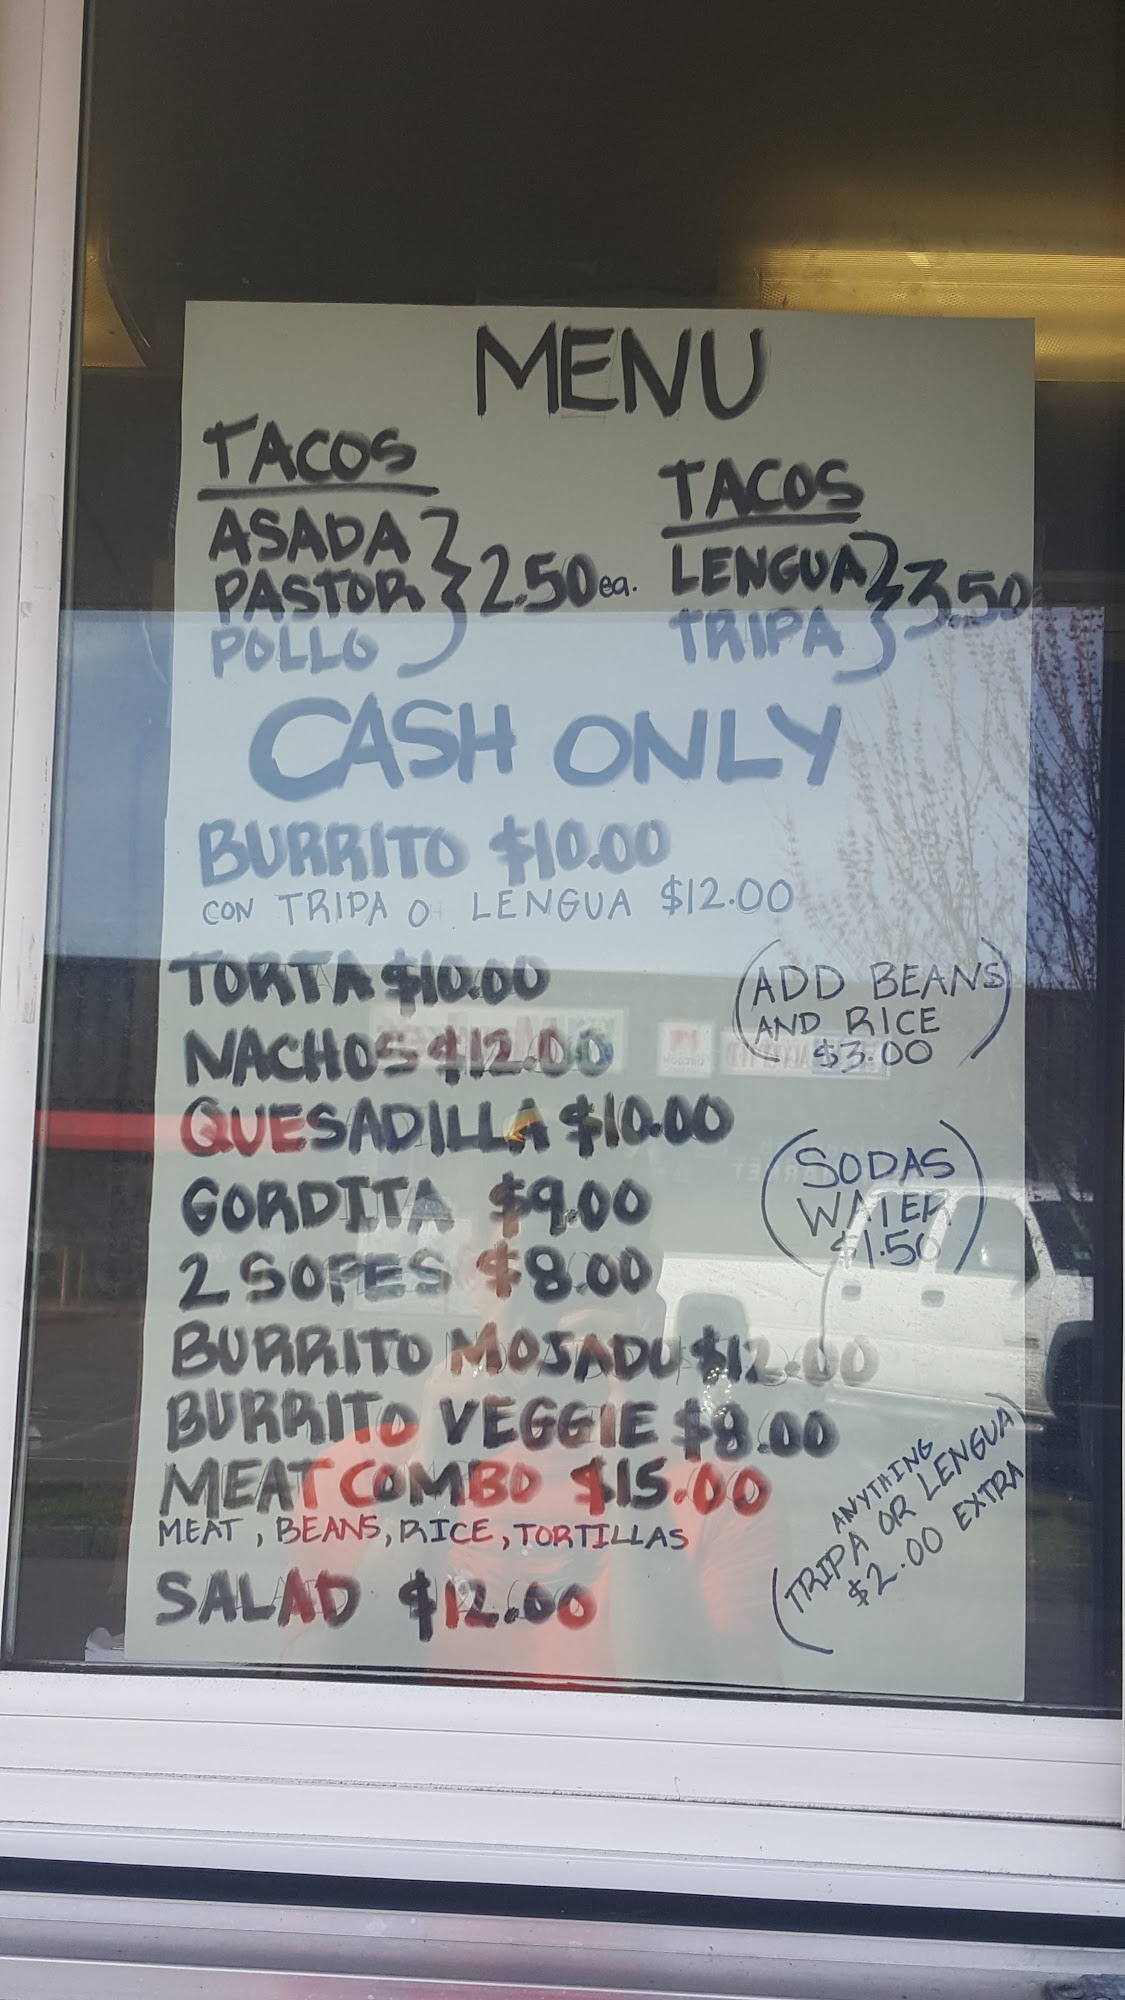 MENU
TACOS
ASADA
PASTOR
POLLO
2.50 ea.
TACOS
LENGUA
TRIPA
3.50
CASH ONLY
BURRITO $10.00
CON TRIPA O LENGUA $12.00
TORTA $10.00
NACHOS $12.00
QUESADILLA $10.00
GORDITA $9.00
2 SOPES $8.00
BURRITO MOJADO $12.00
BURRITO VEGGIE $8.00
MEAT COMBO $15.00
MEAT, BEANS, RICE, TORTILLAS
SALAD $12.00
(ADD BEANS
AND RICE
$3.00)
(SODAS
WATER
$1.50)
(ANYTHING
TRIPA OR LENGUA)
$2.00 EXTRA